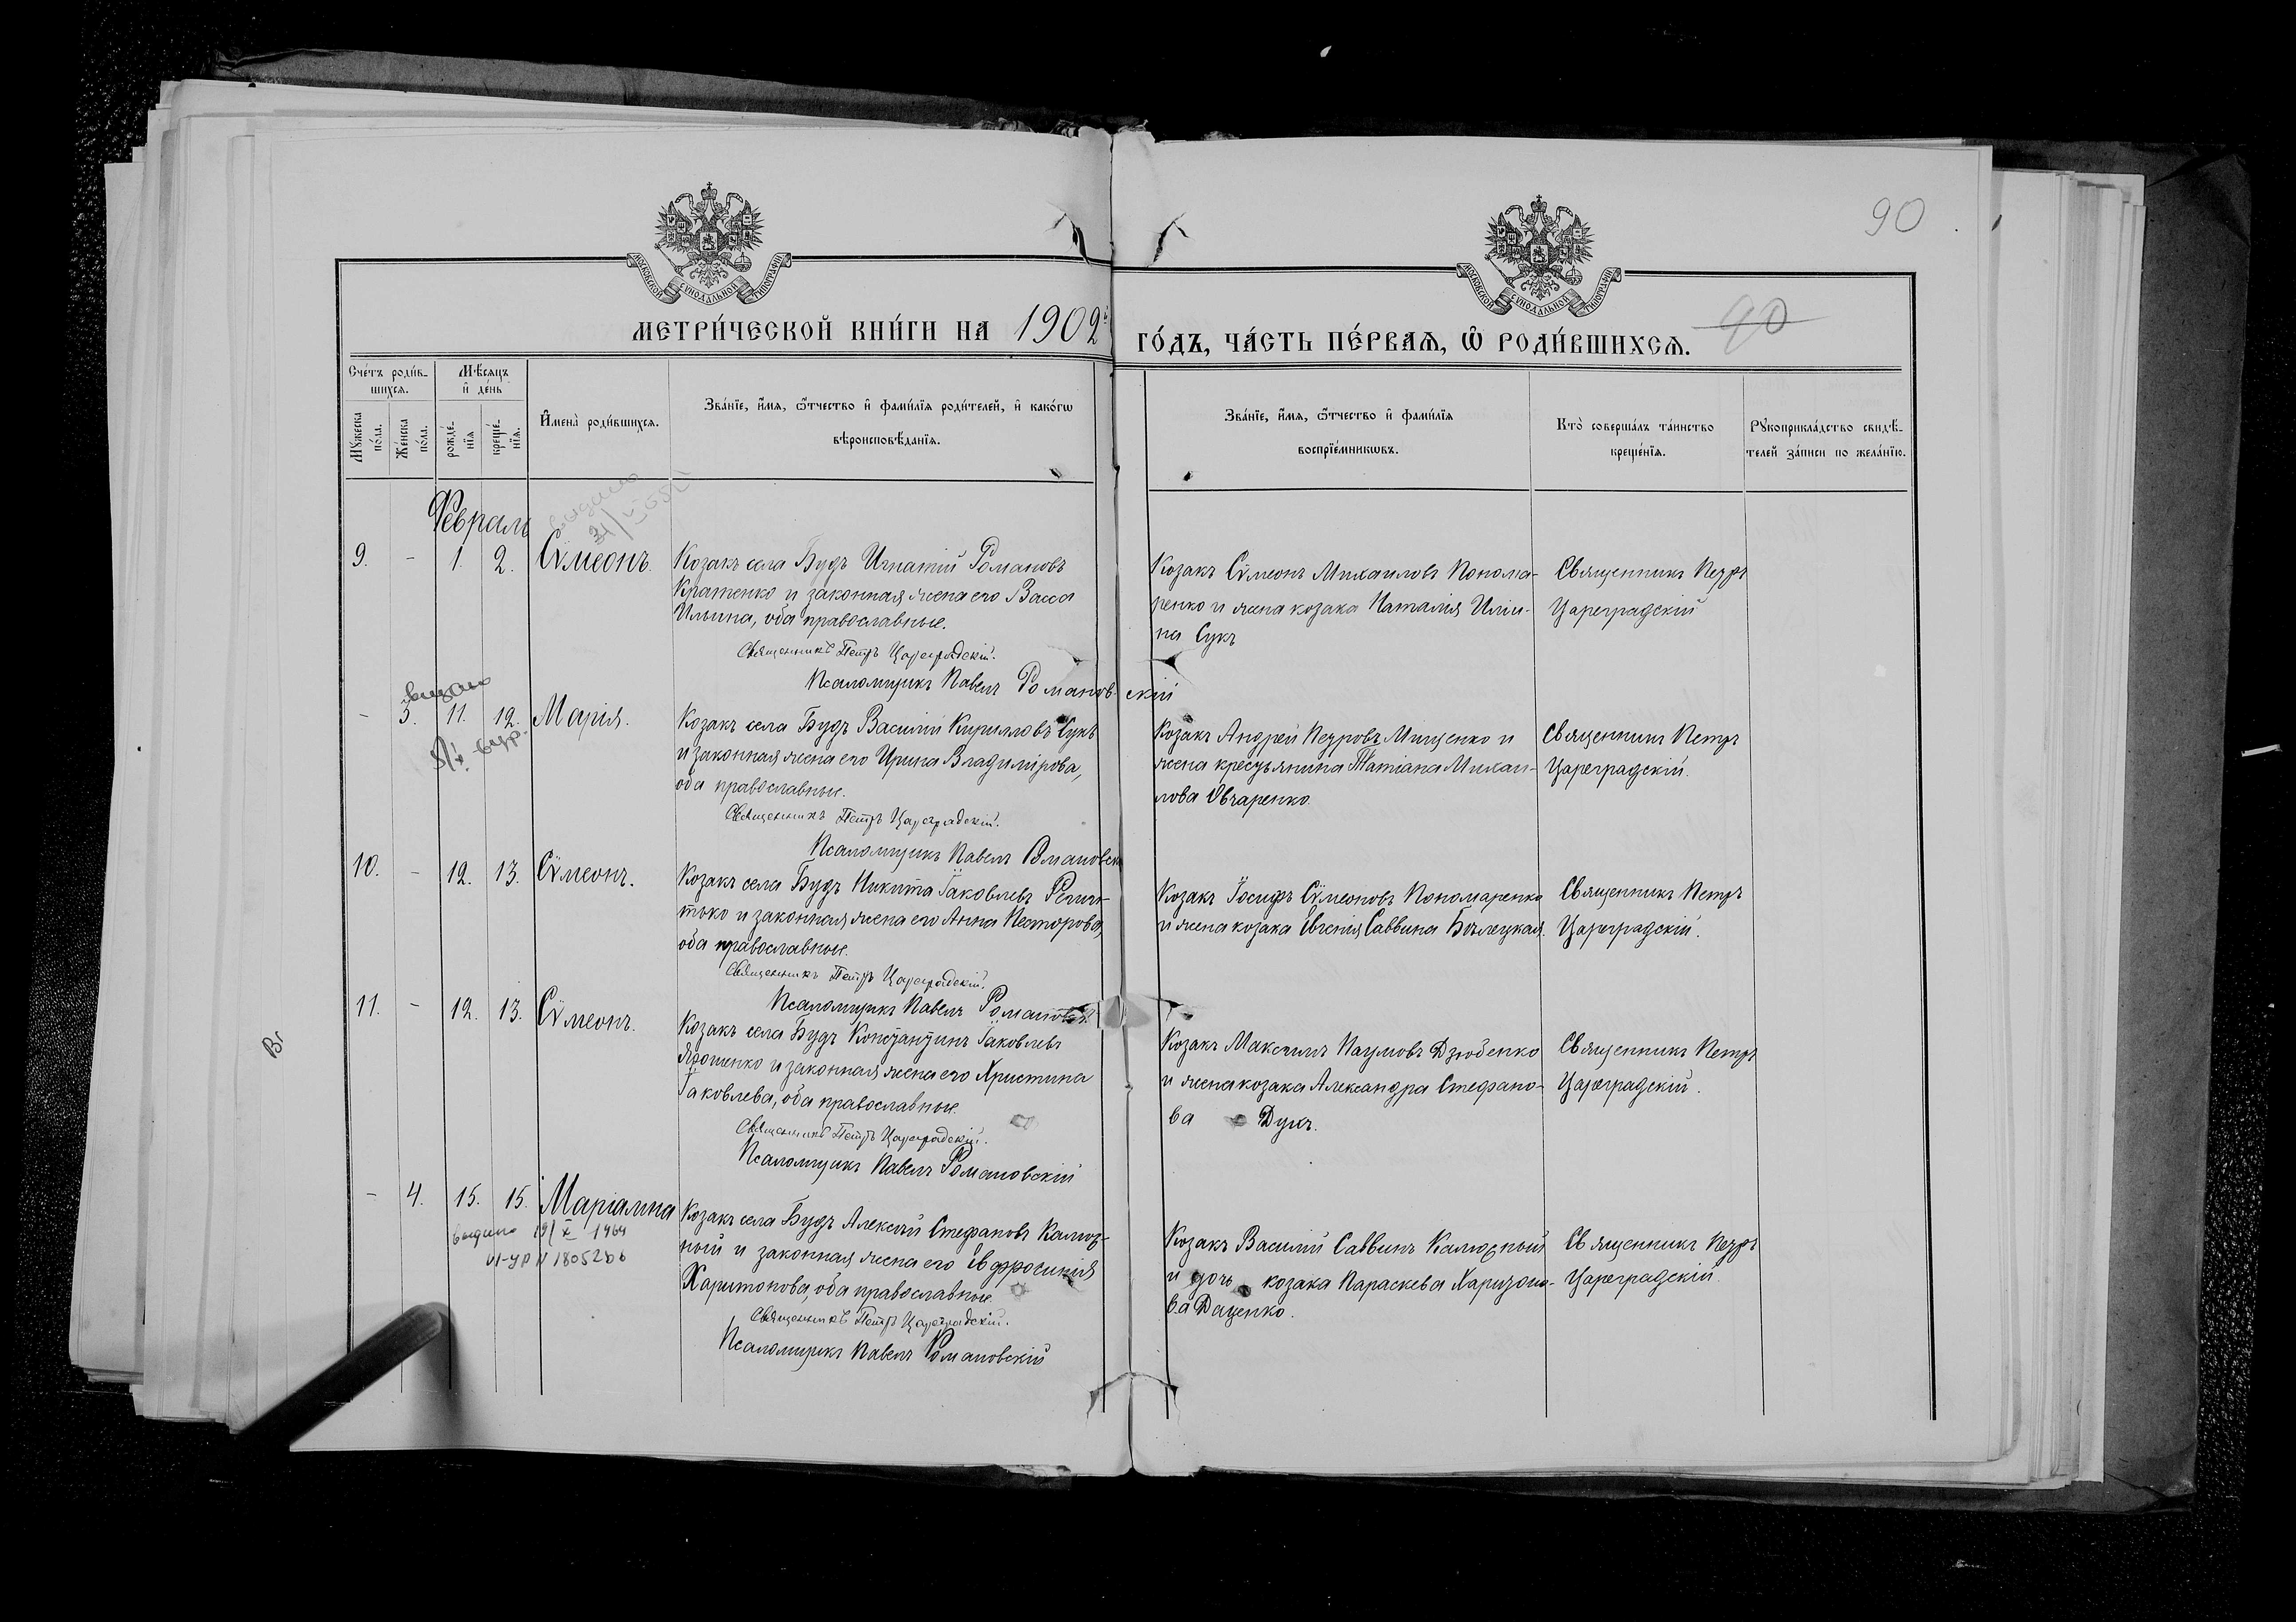 90
МОСКОВСКОЙ СѴНОДАЛЬНОЙ ТИПОГРАФІИ
МОСКОВСКОЙ СѴНОДАЛЬНОЙ ТИПОГРАФІИ
МЕТРИ́ЧЕСКОЙ КНИ́ГИ НА 1902й ГО́ДЪ, ЧА́СТЬ ПЕ́РВАѦ, Ѽ РОДИ́ВШИХСѦ.
90
Сче́тъ роди́вшихсѧ.
Мꙋ́жеска по́ла.
Же́нска по́ла.
Мѣ́сѧцъ и҆ де́нь
рожде́нїѧ
креще́нїѧ.
И҆мена̀ роди́вшихсѧ.
Зва́нїе, и҆́мѧ, ѻ҆́тчество и҆ фами́лїѧ роди́телей, и҆ како́гѡ
вѣроисповѣ́данїѧ.
Зва́нїе, и҆́мѧ, ѻ҆́тчество и҆ фами́лїѧ
воспрїе́мникѡвъ.
Кто̀ соверша́лъ та́инство
креще́нїѧ.
Рꙋкоприкла́дство свидѣ́-
телей за́писи по жела́нїю.
Февраль
выдано
9. - 1. 2. Сѵмеонъ.
Козакъ села Будъ Игнатій Романовъ
Кратенко и законная жена его Васса
Ильина, оба православные.
Священникъ Петръ Цареградскій.
Псаломщикъ Павелъ Романовскій
Козакъ Сѵмеонъ Михаиловъ Понома-
ренко и жена козака Наталія Иліи-
на Сукъ
Священникъ Петръ
Цареградскій
выдано
- 3. 11. 12. Марія.
Козакъ села Будъ Василій Кирилловъ Сукъ
и законная жена его Ирина Владимірова,
оба православные.
Священникъ Петръ Цареградскій.
Псаломщикъ Павелъ Романовскі
Козакъ Андрей Петровъ Мищенко и
жена крестьянина Татіана Михаи-
лова Овчаренко.
Священникъ Петръ
Цареградскій.
10. - 12. 13. Сѵмеонъ.
Козакъ села Будъ Никита Іаковлевъ
и законная жена его Анна Несторова,
оба православные.
Священникъ Петръ Цареградскій.
Псаломщикъ Павелъ Романовскій
Козакъ Іосифъ Сѵмеоновъ Пономаренко
и жена козака Евгенія Саввина Бѣлецкая.
Священникъ Петръ
Цареградскій.
11. - 12. 13. Сѵмеонъ.
Козакъ села Будъ Константинъ Іаковлевъ
Ярошенко и законная жена его Христина
Іаковлева, оба православные.
Священникъ Петръ Цареградскій.
Псаломщикъ Павелъ Романовскій
Козакъ Максимъ Наумовъ Дзюбенко
и жена козака Александра Стефано-
ва Дукъ.
Священникъ Петръ
Цареградскій.
- 4. 15. 15. Маріамна
выдано 19/X 1964
VI-УР N 180526
Козакъ села Будъ Алексій Стефановъ Калюж-
ный и законная жена его Евфросинія
Харитонова, оба православные.
Священникъ Петръ Цареградскій.
Псаломщикъ Павелъ Романовскій
Козакъ Василій Саввинъ Калюжный
и дочь козака Параскева Харитоно-
ва Даценко.
Священникъ Петръ
Цареградскій.